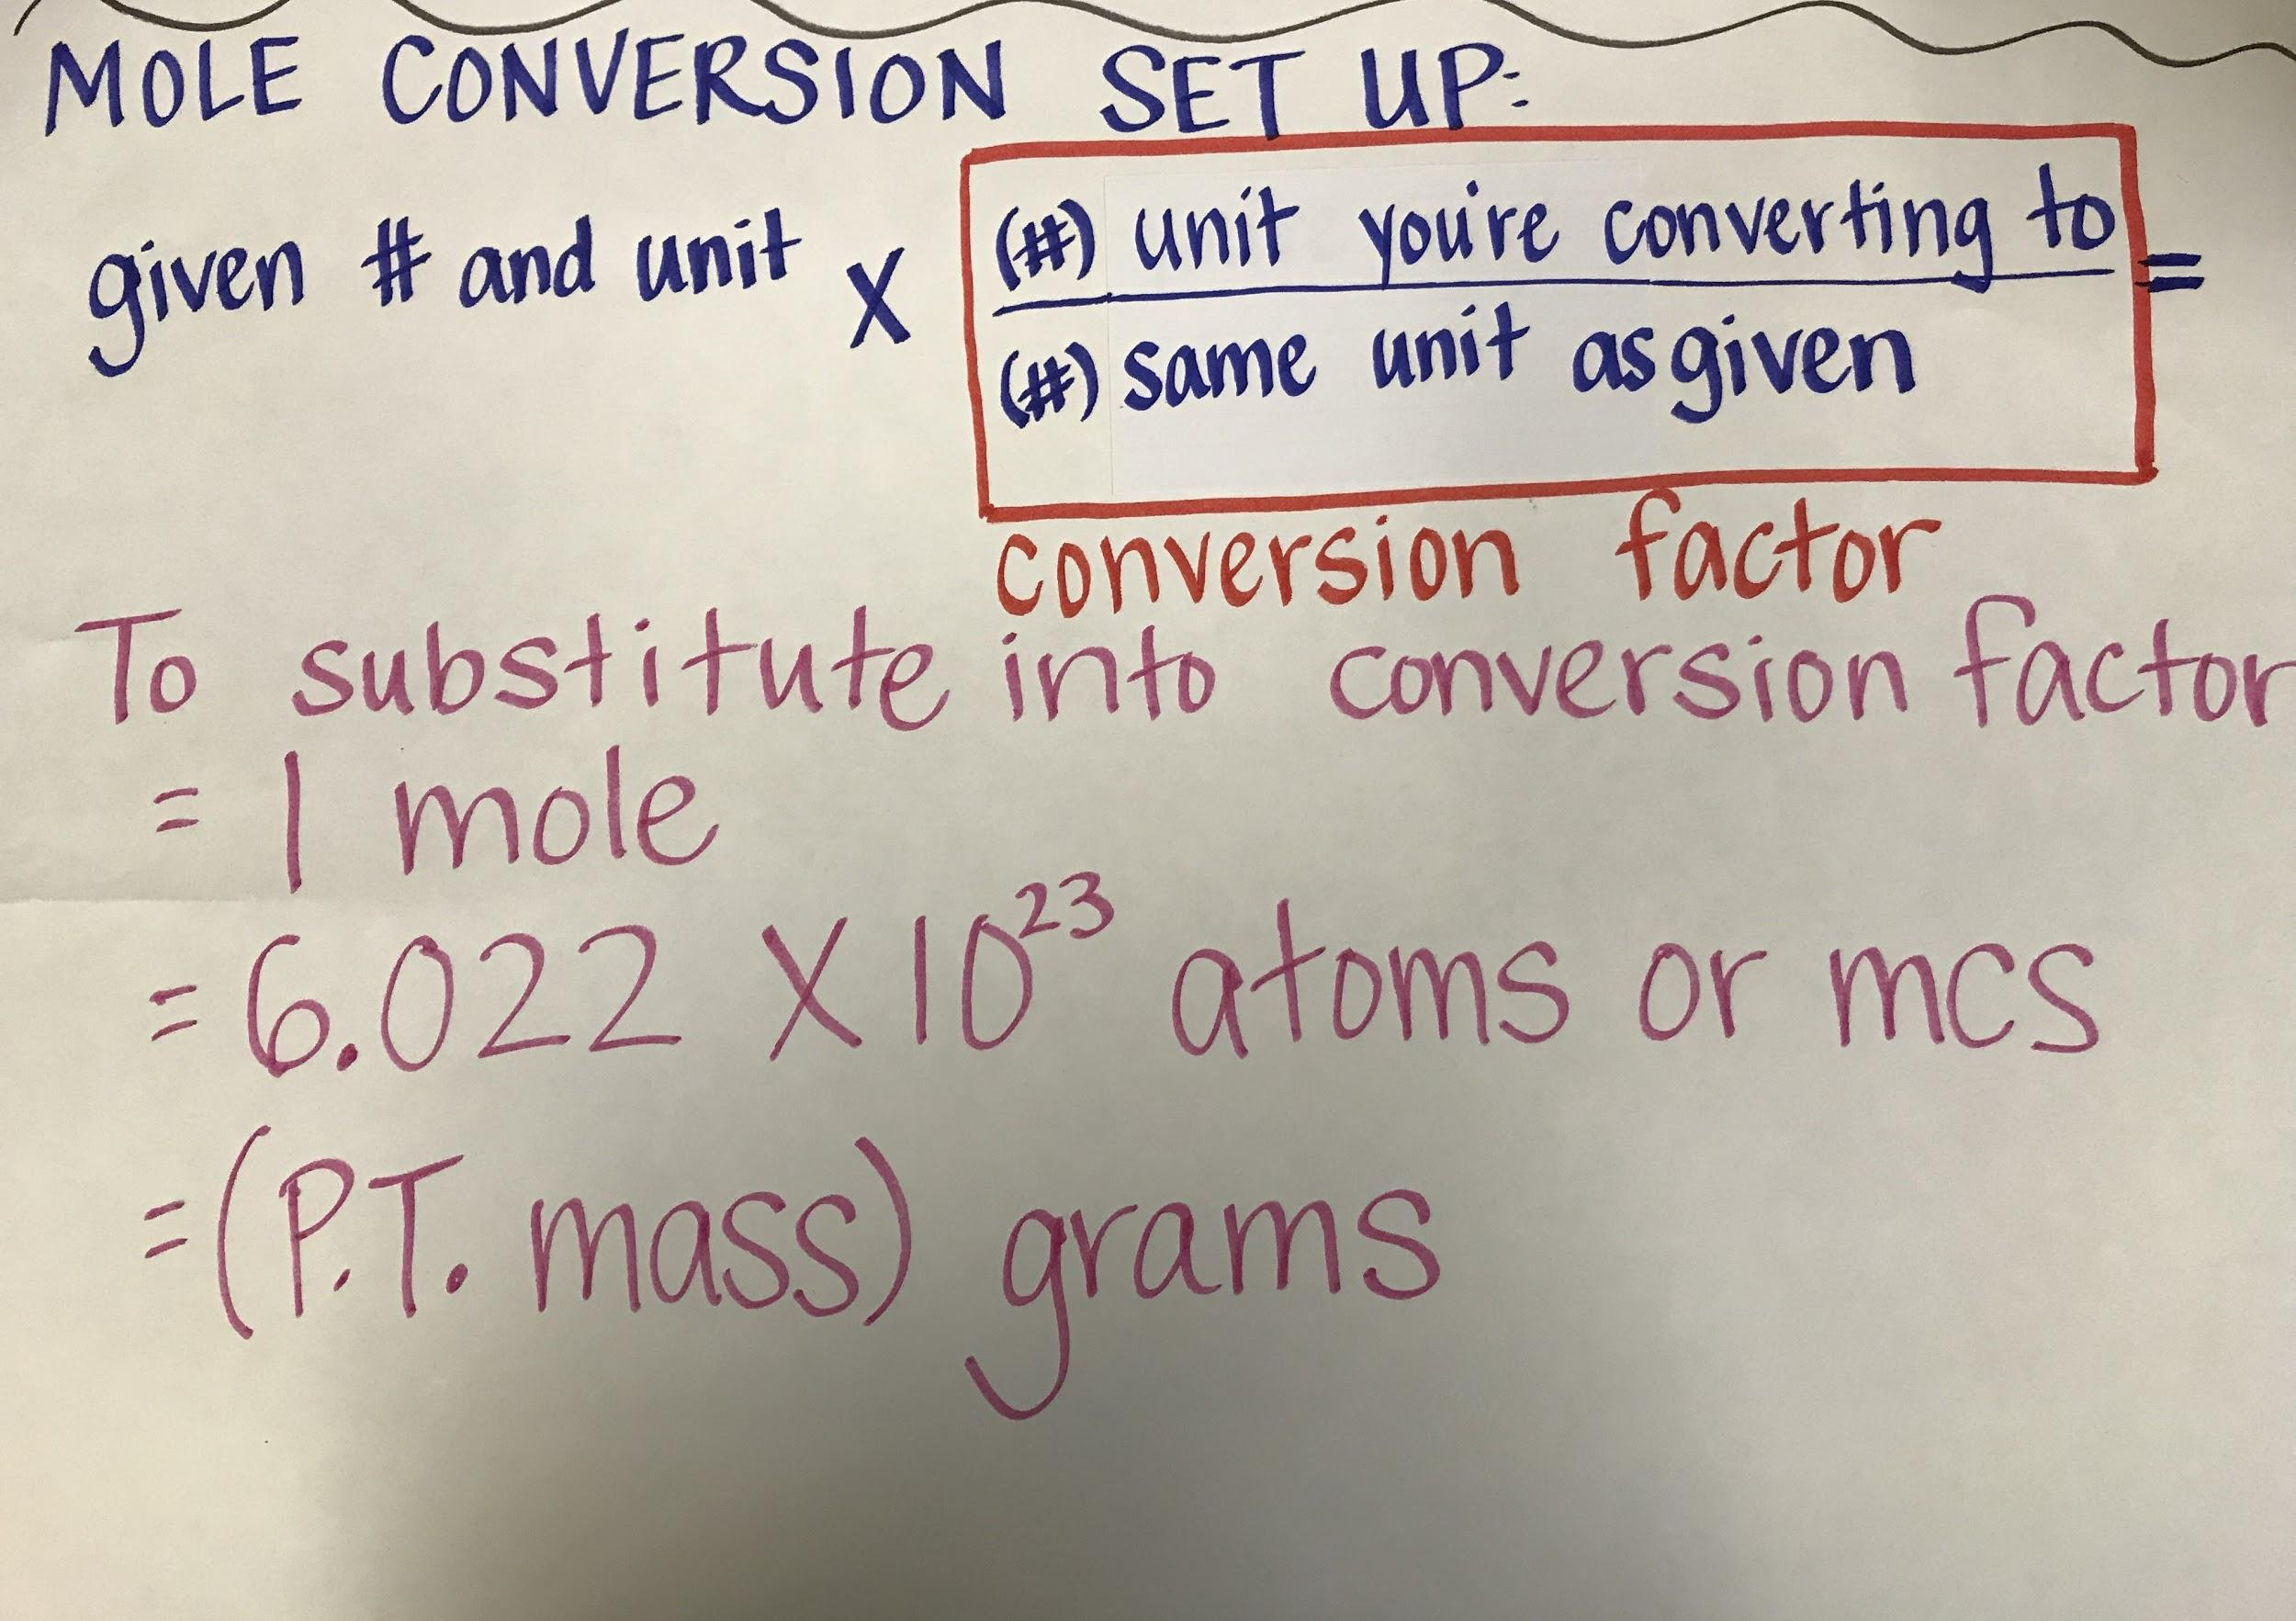 MOLE CONVERSION SET UP:
given # and unit X (#) unit you're converting to =
(#) same unit as given
conversion factor
To substitute into conversion factor
= 1 mole
= 6.022 X 10²³ atoms or mcs
= (P.T. mass) grams